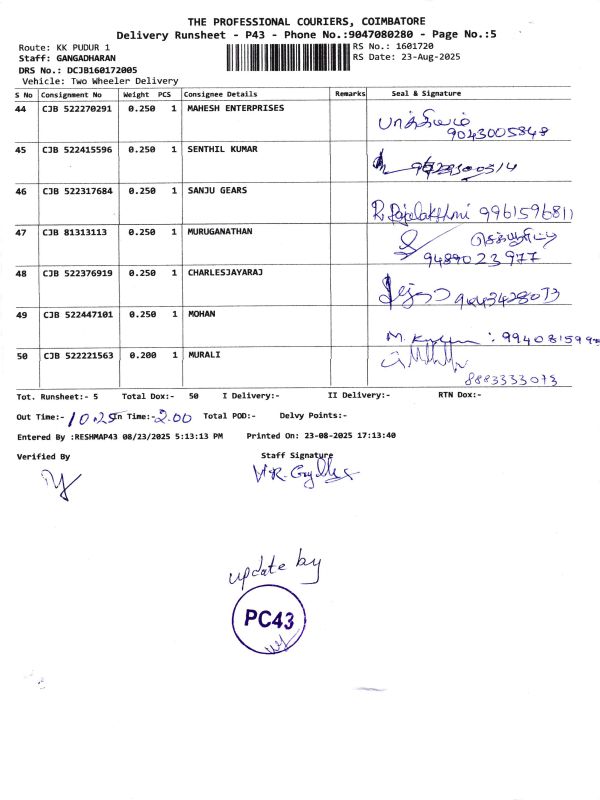 THE PROFESSIONAL COURIERS, COIMBATORE
Delivery Runsheet - P43 - Phone No.:9047080280 - Page No.:5
Route: KK PUDUR 1
RS No.: 1601720
Staff: GANGADHARAN
RS Date: 23-Aug-2025
DRS No.: DCJB160172005
Vehicle: Two Wheeler Delivery
S No Consignment No Weight PCS Consignee Details Remarks Seal & Signature
44 CJB 522270291 0.250 1 MAHESH ENTERPRISES
9043005848
45 CJB 522415596 0.250 1 SENTHIL KUMAR
46 CJB 522317684 0.250 1 SANJU GEARS
R Rajalakshmi 9961596811
47 CJB 81313113 0.250 1 MURUGANATHAN
9489023977
48 CJB 522376919 0.250 1 CHARLESJAYARAJ
49 CJB 522447101 0.250 1 MOHAN
50 CJB 522221563 0.200 1 MURALI
8883333073
Tot. Runsheet:- 5 Total Dox:- 50 I Delivery:- II Delivery:- RTN Dox:-
Out Time:- 10.25 In Time:- 2.00 Total POD:- Delvy Points:-
Entered By :RESHMAP43 08/23/2025 5:13:13 PM Printed On: 23-08-2025 17:13:40
Verified By Staff Signature
update by
PC43